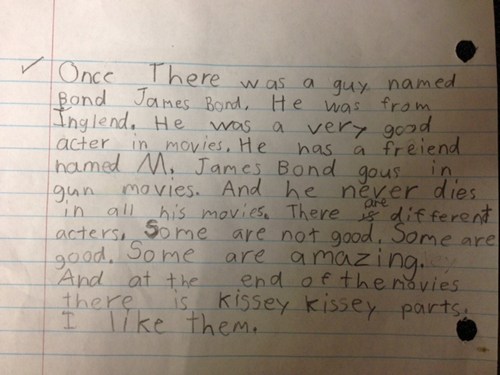 ✓ Once There was a guy named
Bond James Bond. He was from
Inglend. He was a very good
acter in movies. He has a freiend
named M. James Bond gous in
gun movies. And he never dies
in all his movies. There are different
acters. Some are not good. Some are
good. Some are amazing.
And at the end of the movies
there is kissey kissey parts.
I like them.